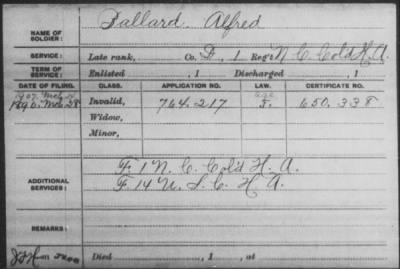 Fallard Alfred
NAME OF SOLDIER:
SERVICE: Late rank, Co. F, 1 Reg't N. C. Col'd H. A.
TERM OF SERVICE: Enlisted , 1 Discharged , 1
DATE OF FILING. CLASS. APPLICATION NO. LAW. CERTIFICATE NO.
1907. Mch
1890. Invalid, 764.217 650.338
Widow,
Minor,
F. 1 N. C. Col'd H. A.
ADDITIONAL SERVICES: F. 14 U. S. C. H. A.
REMARKS:
Died , 1 , at